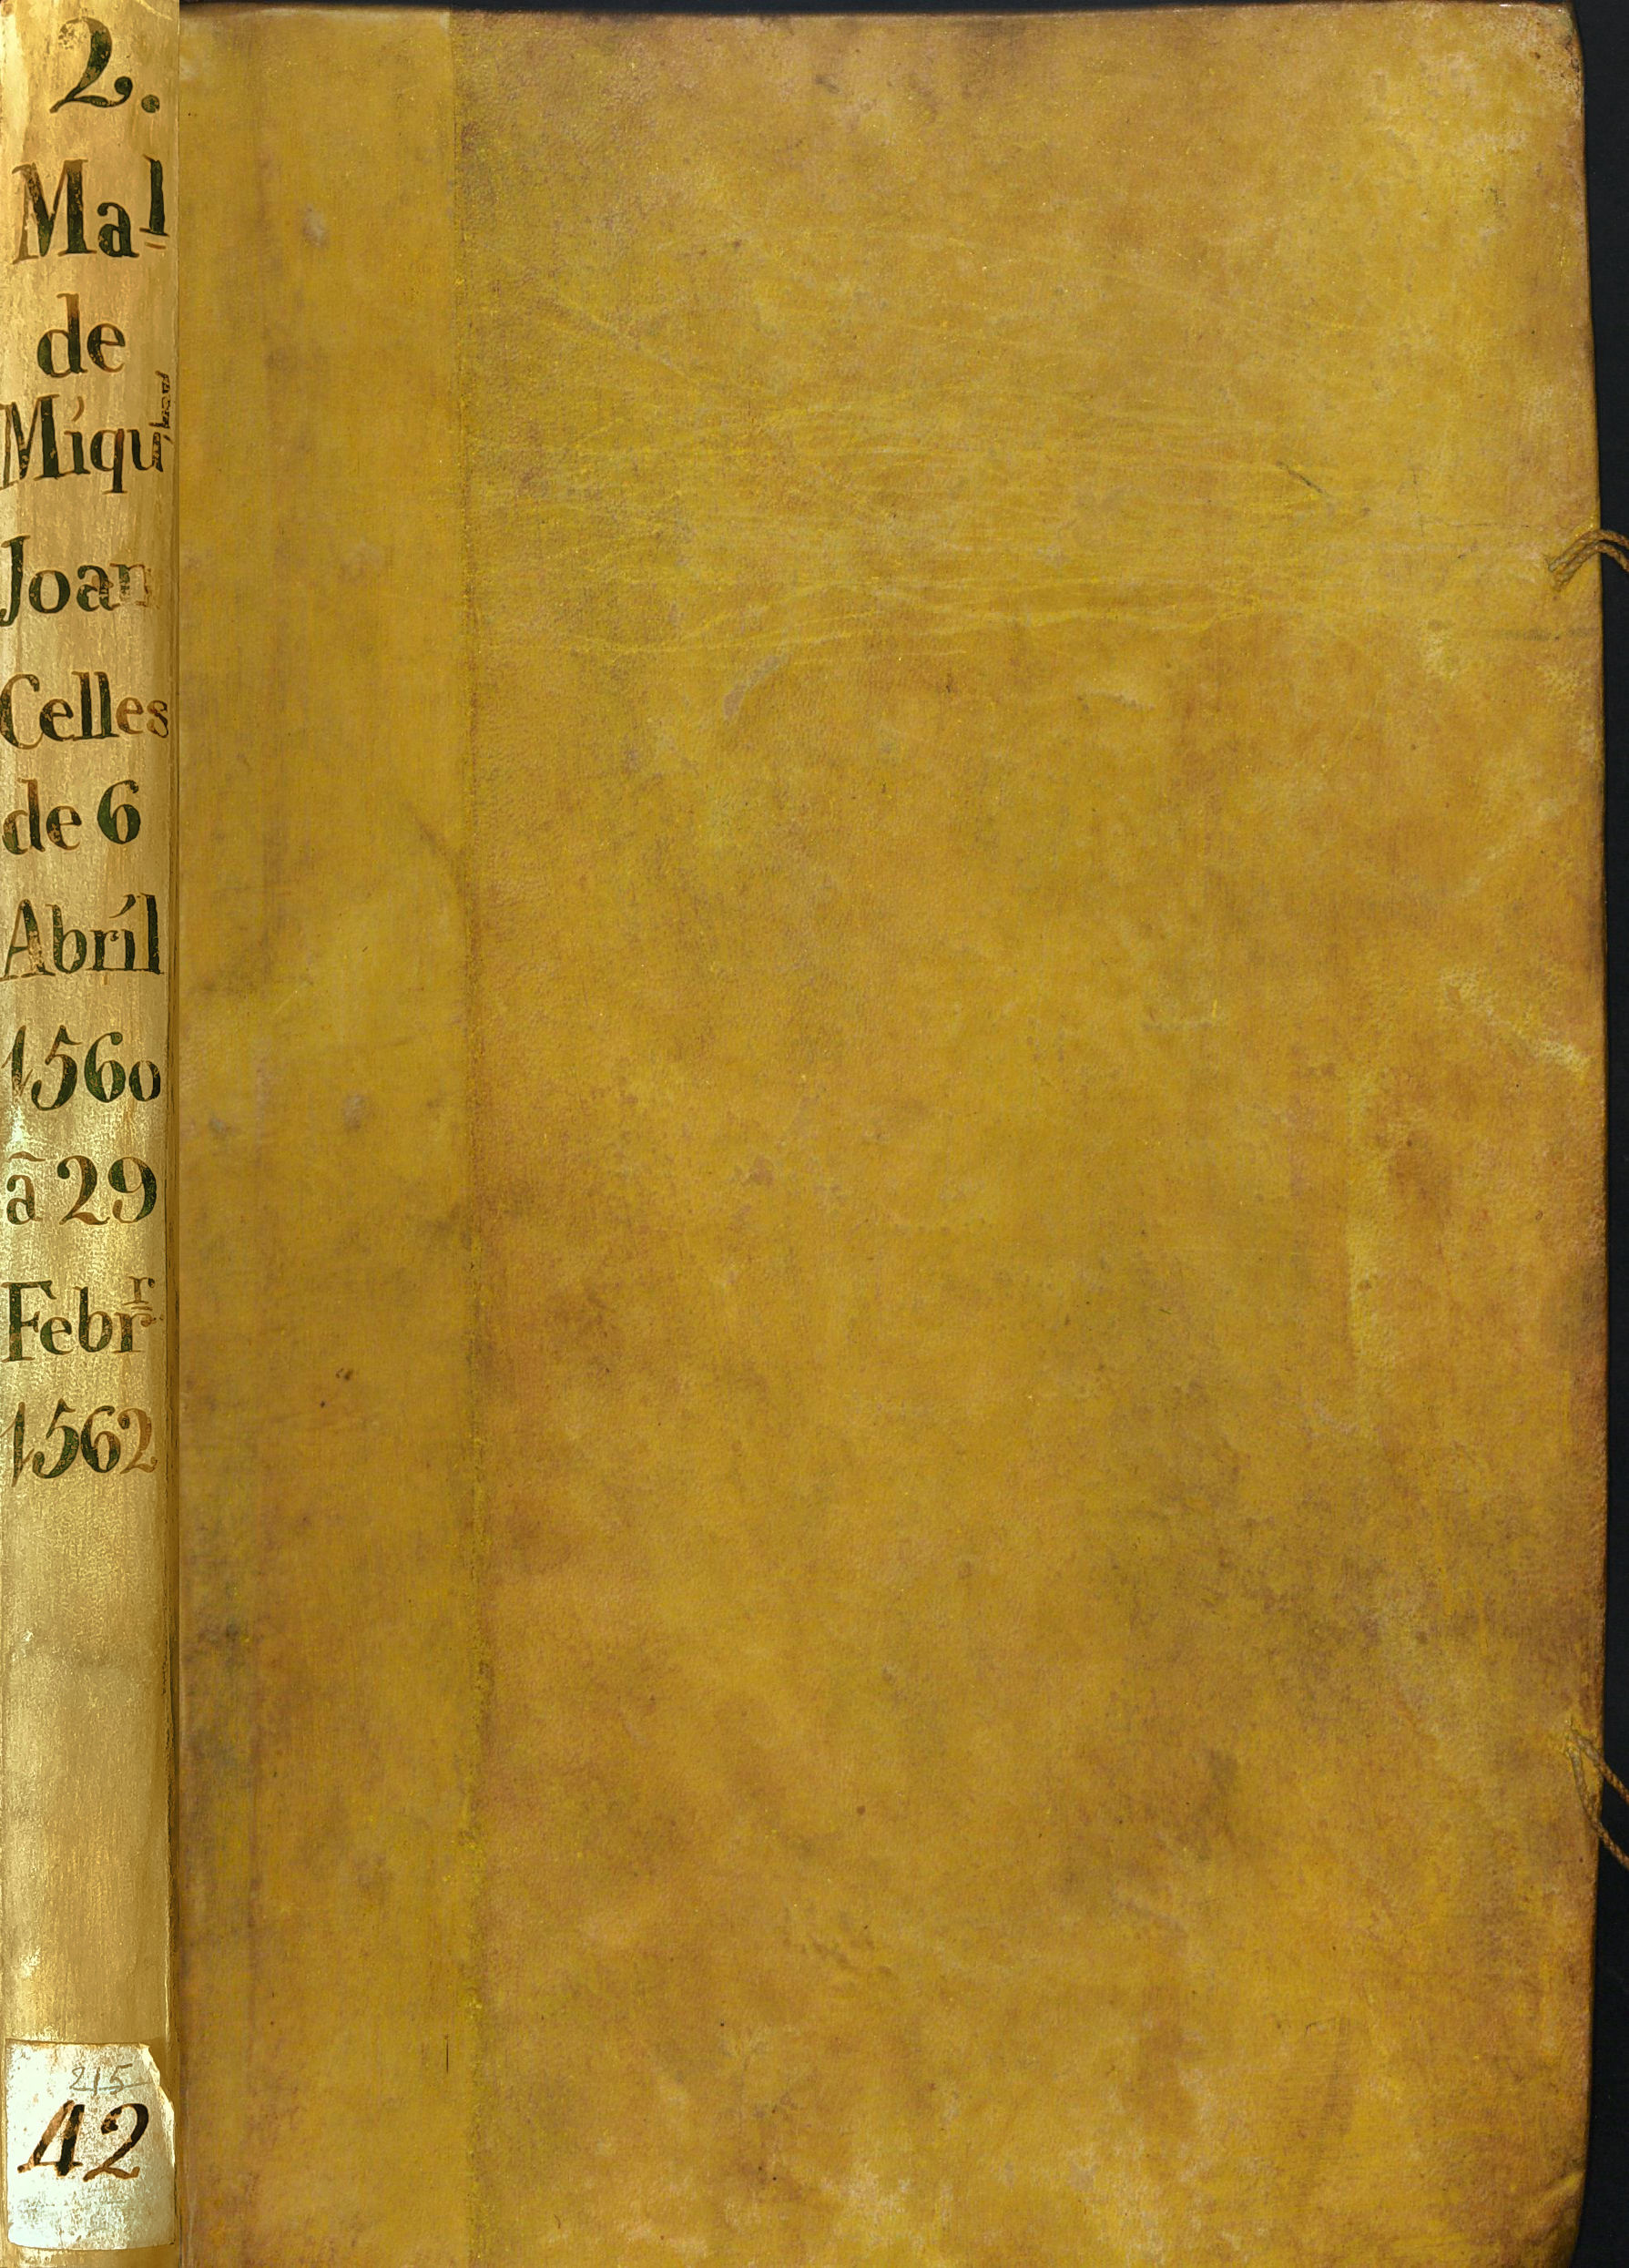 2.
Mal
de
Míqu
Joan
Celles
de 6
Abríl
1560
ā 29
Febrr
1562
215
42